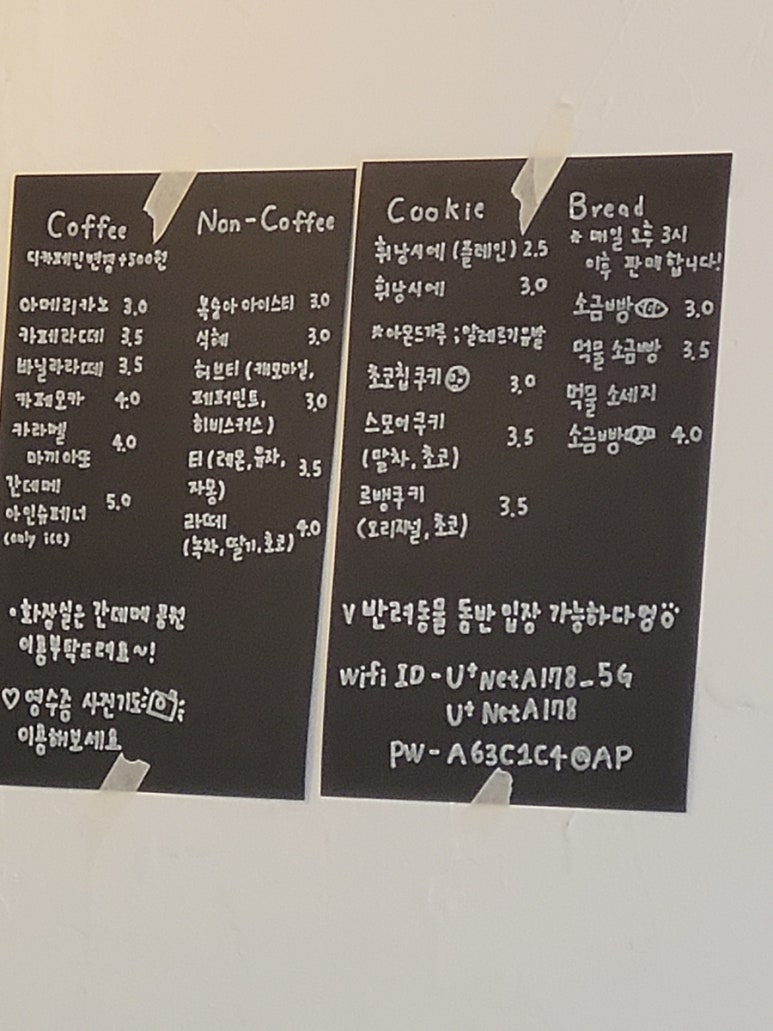 Coffee
디카페인 변경 +500원
아메리카노 3.0
카페라떼 3.5
바닐라라떼 3.5
카페모카 4.0
카라멜
마끼아또 4.0
간데메
아인슈페너 5.0
(only ice)
Non-Coffee
복숭아 아이스티 3.0
식혜 3.0
허브티 (캐모마일,
페퍼민트, 3.0
히비스커스)
티 (레몬, 유자, 3.5
자몽)
라떼 4.0
(녹차, 딸기, 초코)
• 화장실은 간데메 공원
이용부탁드려요~!
♡ 영수증 사진기도
이용해보세요
Cookie
휘낭시에 (플레인) 2.5
휘낭시에 3.0
※아몬드가루 ; 알레르기유발
초코칩 쿠키 3.0
스모어 쿠키 3.5
(말차, 초코)
르뱅쿠키 3.5
(오리지널, 초코)
Bread
* 매일 오후 3시
이후 판매합니다!
소금빵 3.0
먹물 소금빵 3.5
먹물 소세지
소금빵 4.0
V 반려동물 동반 입장 가능하다멍
wifi ID - U+NetA178_5G
U+NetA178
PW - A63C1C4@AP